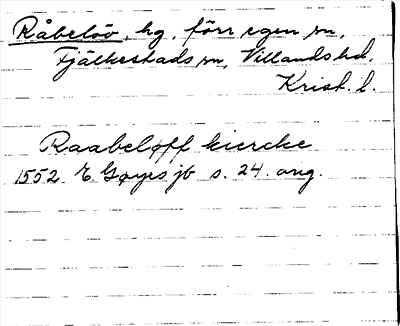 Råbelöv, hg, förr egen sn,
Fjälkestads sn, Villands hd,
Krist. l.
Raabeløff kiercke
1552 E. Gøyes jb s. 24. ang.